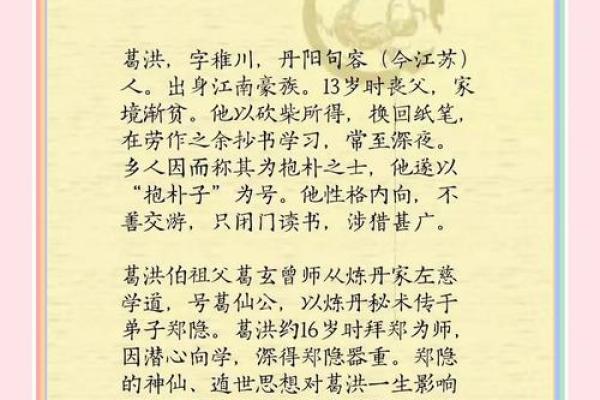 葛洪，字稚川，丹阳句容（今江苏）
人。出身江南豪族。13岁时丧父，家
境渐贫。他以砍柴所得，换回纸笔，
在劳作之余抄书学习，常至深夜。
乡人因而称其为抱朴之士，他遂以
“抱朴子”为号。他性格内向，不
善交游，只闭门读书，涉猎甚广。
葛洪伯祖父葛玄曾师从炼丹家左慈
学道，号葛仙公，以炼丹秘术传于
弟子郑隐。葛洪约16岁时拜郑为师，
因潜心向学，深得郑隐器重。郑隐
的神仙、遁世思想对葛洪一生影响